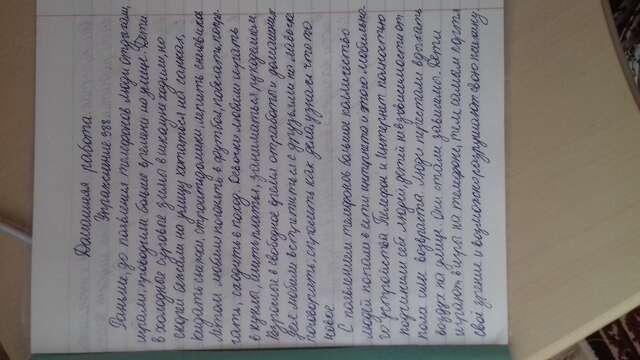 Домашняя работа.
Упражнение 388.
Раньше, до появления телефонов люди отдыхали,
играли, проводили больше времени на улице. Дети
в холодные суровые зимы в школу не ходили, но
скорей бежали на улицу кататься на санках,
кидать снежки, строить домики, лепить снеговиков.
Летом любили погонять в футбол, побегать, попры-
гать, сходить в поход. Девочки любили играть
в куклы, шить платья, заниматься рукоделием.
Взрослые в свободное время от работы и домашних
дел любили встретиться с друзьями на лавочке
поговорить, спросить как дела, узнать что-то
новое.
С появлением телефонов большое количество
людей попали в сети интернета и этого мобильно-
го устройства. Телефон и Интернет полностью
подчинили себе людей, детей не взависимости от
пола или возвраста. Люди перестали вдыхать
воздух на улице. Они стали зависимы. Дети
играют в игры на телефоне, тем самым портя
своё зрение и возможно разрушают свою психику.